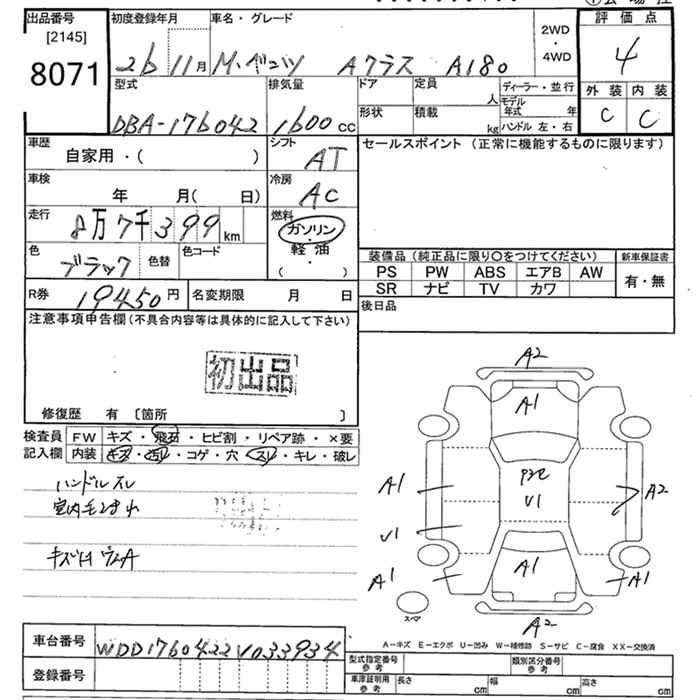 出品番号 [2145] 8071
初度登録年月 26 11月
車名・グレード M・ベンツ Aクラス A180
2WD・4WD
評価点 4
外装 C 内装 C
型式 DBA-176042
排気量 1600 cc
ドア
形状
定員 人
積載 kg
ディーラー・並行
モデル年式 年
ハンドル 左・右
車歴 自家用・( )
シフト AT
セールスポイント (正常に機能するものに限ります)
車検 年 月( 日)
冷房 AC
走行 8万7千399 km
燃料 ガソリン・軽油・( )
色 ブラック 色替 色コード
装備品(純正品に限り○をつけてください) 新車保証書
PS PW ABS エアB AW 有・無
SR ナビ TV カワ
R券 19450円 名変期限 月 日
後日品
注意事項申告欄(不具合内容等は具体的に記入して下さい)
初出品
修復歴 有 〔箇所 〕
検査員記入欄
FW キズ・飛石・ヒビ割・リペア跡・×要
内装 キズ・汚レ・コゲ・穴・スレ・キレ・破レ
ハンドルスレ
A2
A1
A1
V1
A1
V1
A2
A1
A1
A2
スペア
A-キズ E-エクボ U-凹み W-補修跡 S-サビ C-腐食 XX-交換済
車台番号 WDD1760422V033934
登録番号
型式指定番号参考 類別区分番号参考
車庫証明用参考 長さ cm 幅 cm 高さ cm